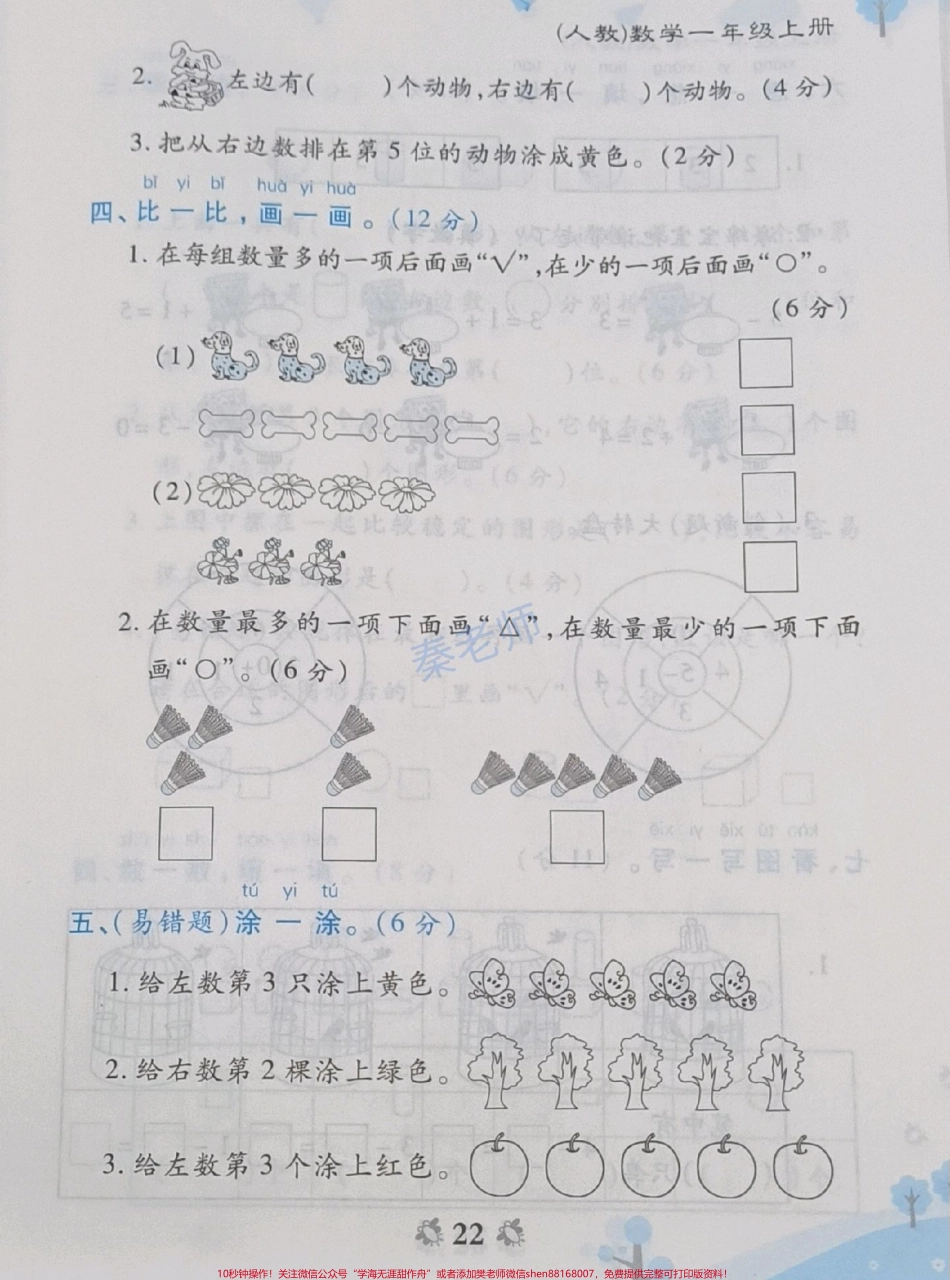 (人教)数学一年级上册
2. 左边有(　　)个动物,右边有(　　)个动物。(4分)
3. 把从右边数排在第5位的动物涂成黄色。(2分)
bǐ yi bǐ huà yi huà
四、比一比,画一画。(12分)
1. 在每组数量多的一项后面画“√”,在少的一项后面画“○”。
(6分)
(1)
(2)
2. 在数量最多的一项下面画“△”,在数量最少的一项下面
画“○”。(6分)
秦老师
tú yi tú
五、(易错题)涂一涂。(6分)
1. 给左数第3只涂上黄色。
2. 给右数第2棵涂上绿色。
3. 给左数第3个涂上红色。
22
10秒钟操作!关注微信公众号“学海无涯甜作舟”或者添加樊老师微信shen88168007,免费提供完整可打印版资料!